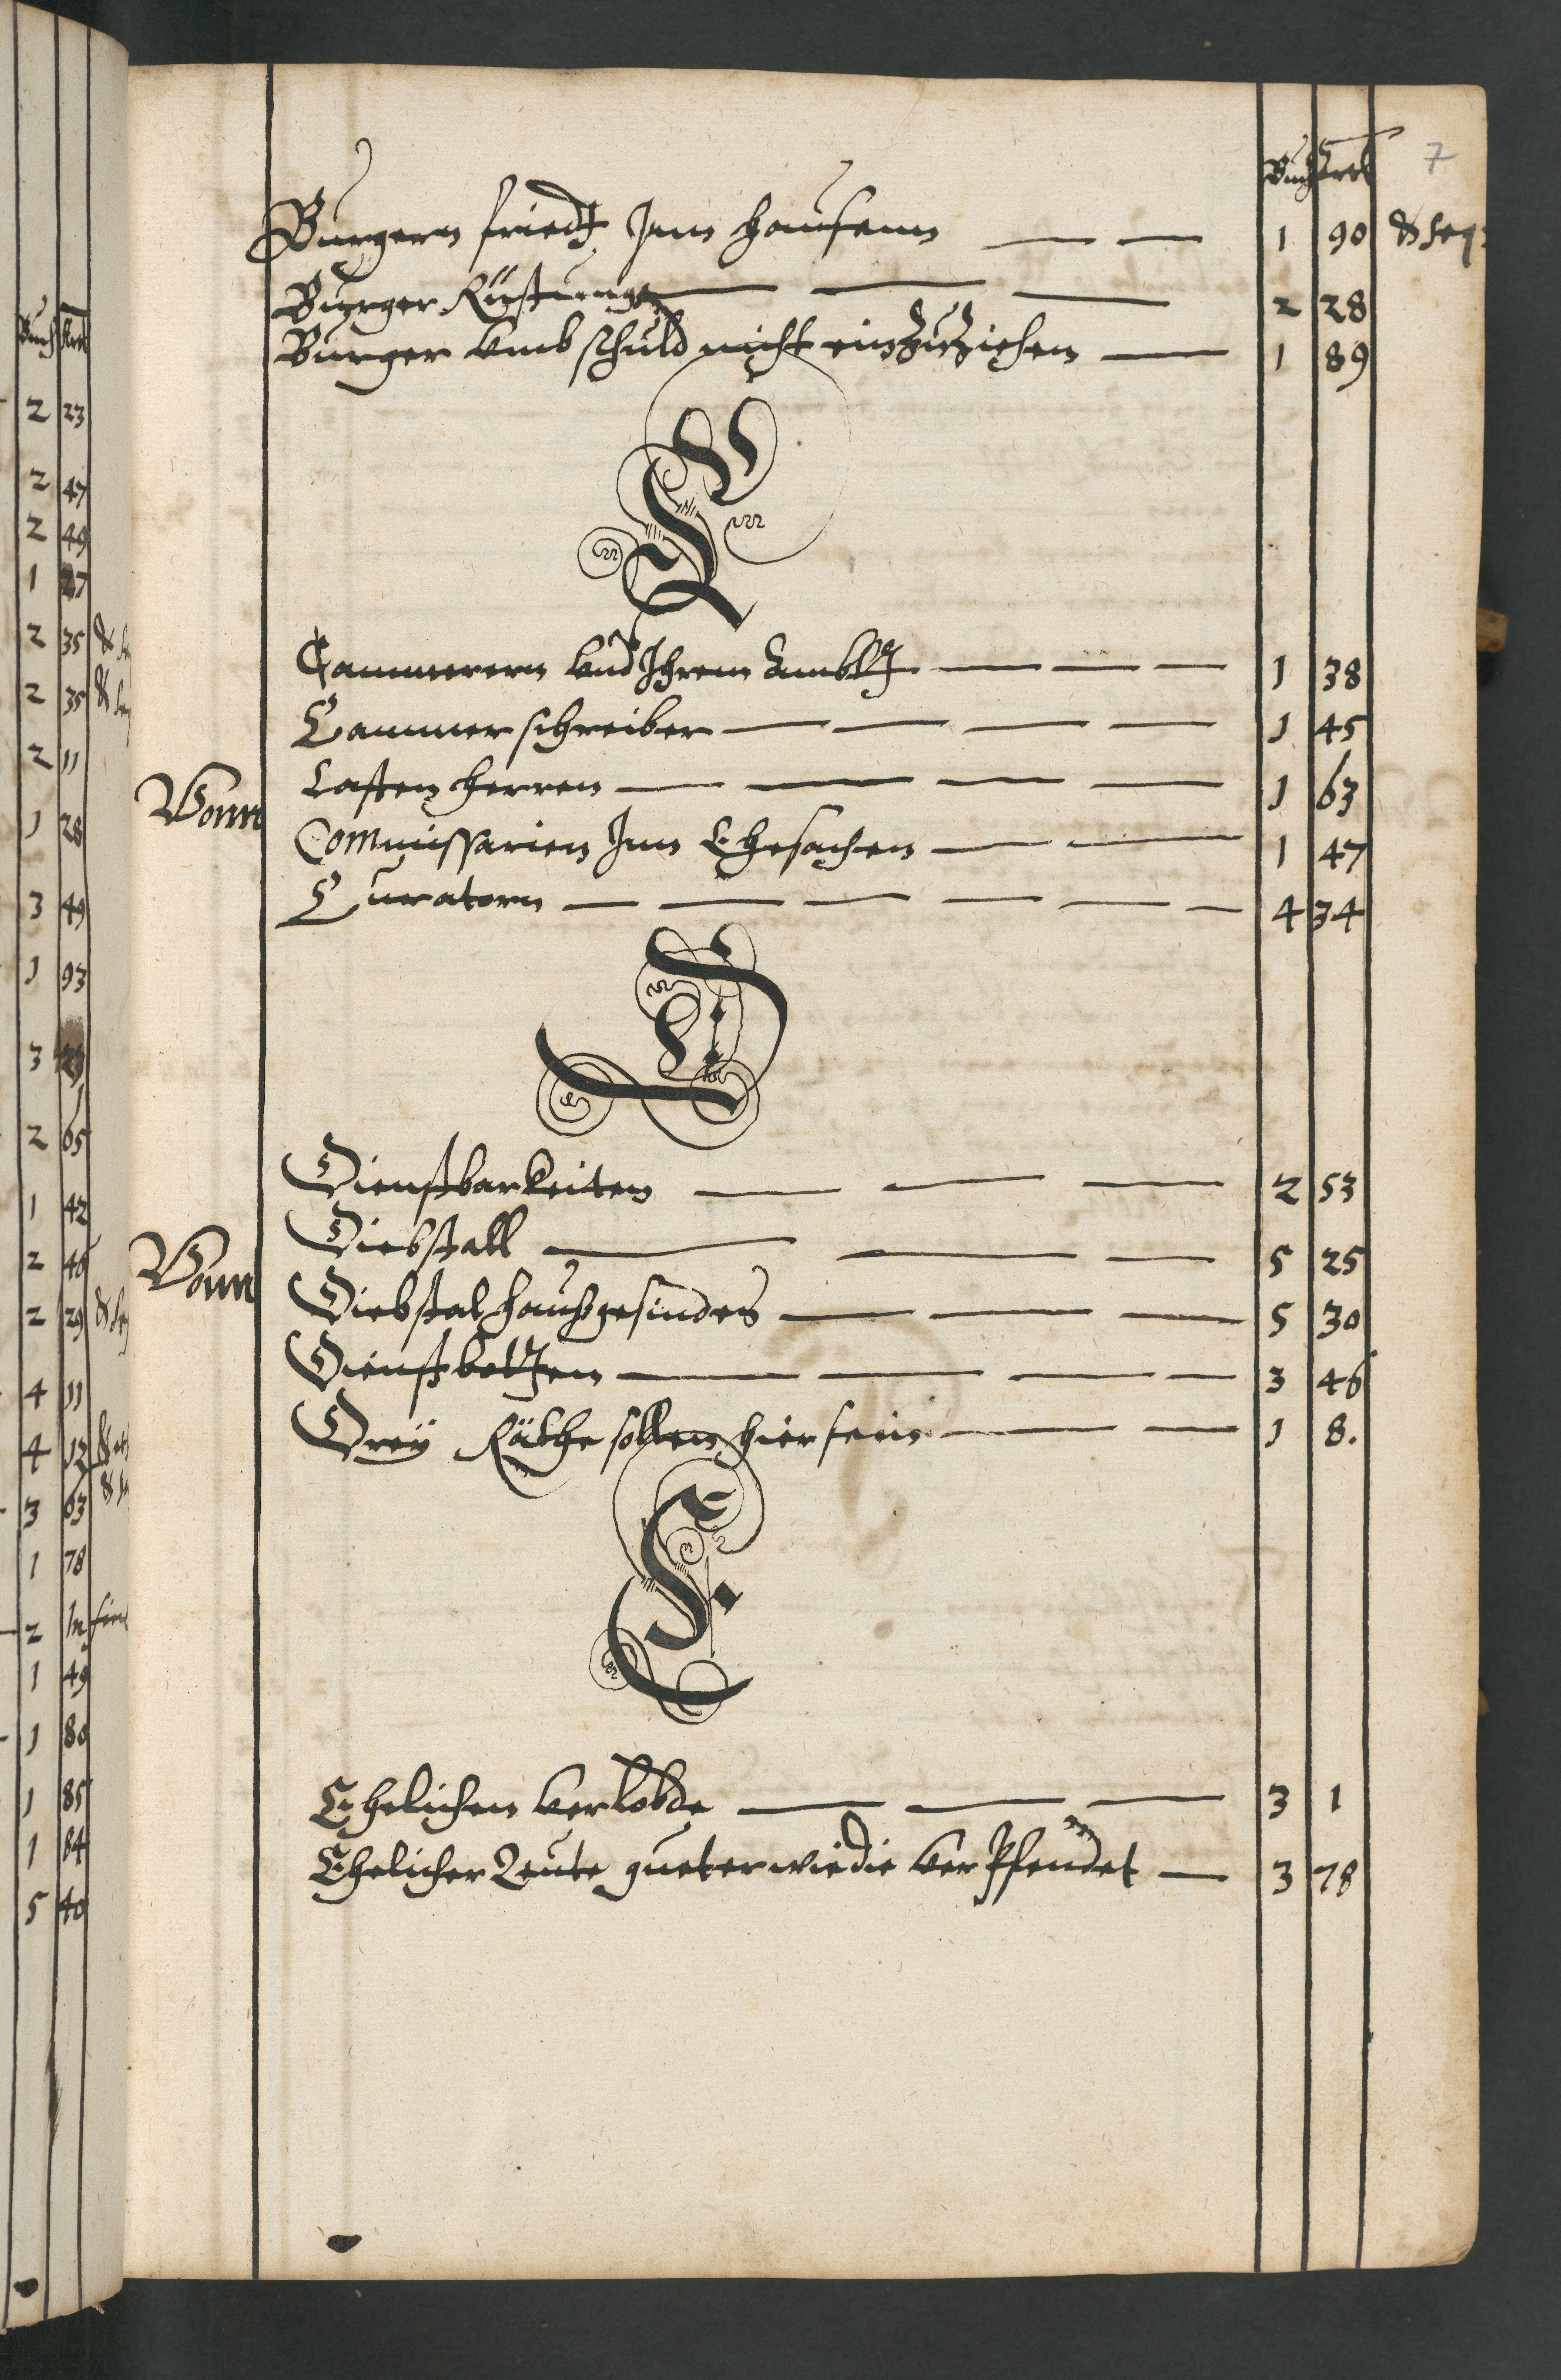 Buch Artl 7
Burgern friedt Inn heusernn 1 90 & seq:
Burger Rüstunge 2 28
Burger vmb schuld nicht einzuziehen 1 89
C
Cammerern vnd Ihrem Ambtt 1 38
Cammerschreiber 1 45
Vonn Casten herren 1 63
Commissarien Inn Ehesachen 1 47
Curatorn 4 34
D
Dienstbarkeiten 2 53
Diebstall 5 25
Vonn Diebstal haußgesindes 5 30
Dienstbotten 3 46
Drey Räthe sollen hier sein 1 8.
E
Ehelichen verlobde 3 1
Ehelicher Leute gueter wie die verpfendet 3 78
Buch Artl
2 23
2 47
2 49
1
2 35
2 35
2 11
1 28
3 49
1 93
3
2 65
1 42
2
2 29
4 11
4 12
3 63
1 78
2 In fine
1 49
1 80
1 85
1 84
5 40